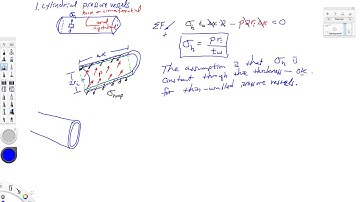 1. Cylindrical pressure vessels
hoop or circumferential
axial
longitudinal
σh
Δx
σhoop
ΣF
σh tw Δx 2 - p 2ri Δx = 0
σh = pri / tw
The assumption is that σh is
constant though the thickness - ok.
for thin-walled pressure vessels.